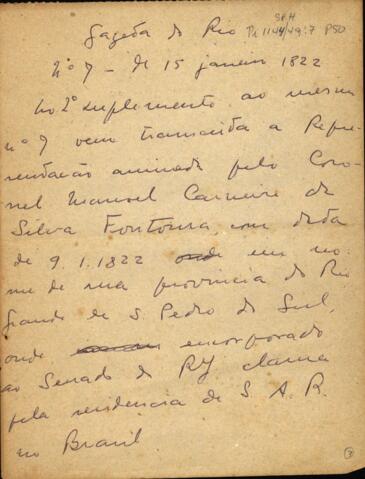 SPH
Gazeta do Rio Pi 1144/49:7 P50
Nº 7 – de 15 janeiro 1822
No 2º suplemento ao mesmo
nº 7 vem transcrita a Repre-
sentação assinada pelo Coro-
nel Manoel Carneiro da
Silva Fontoura, com data
de 9.1.1822 onde em no-
me de sua provincia do Rio
Grande de S. Pedro do Sul,
onde encorporado
ao Senado do RJ clama
pela residencia de S. A. R.
no Brasil
3